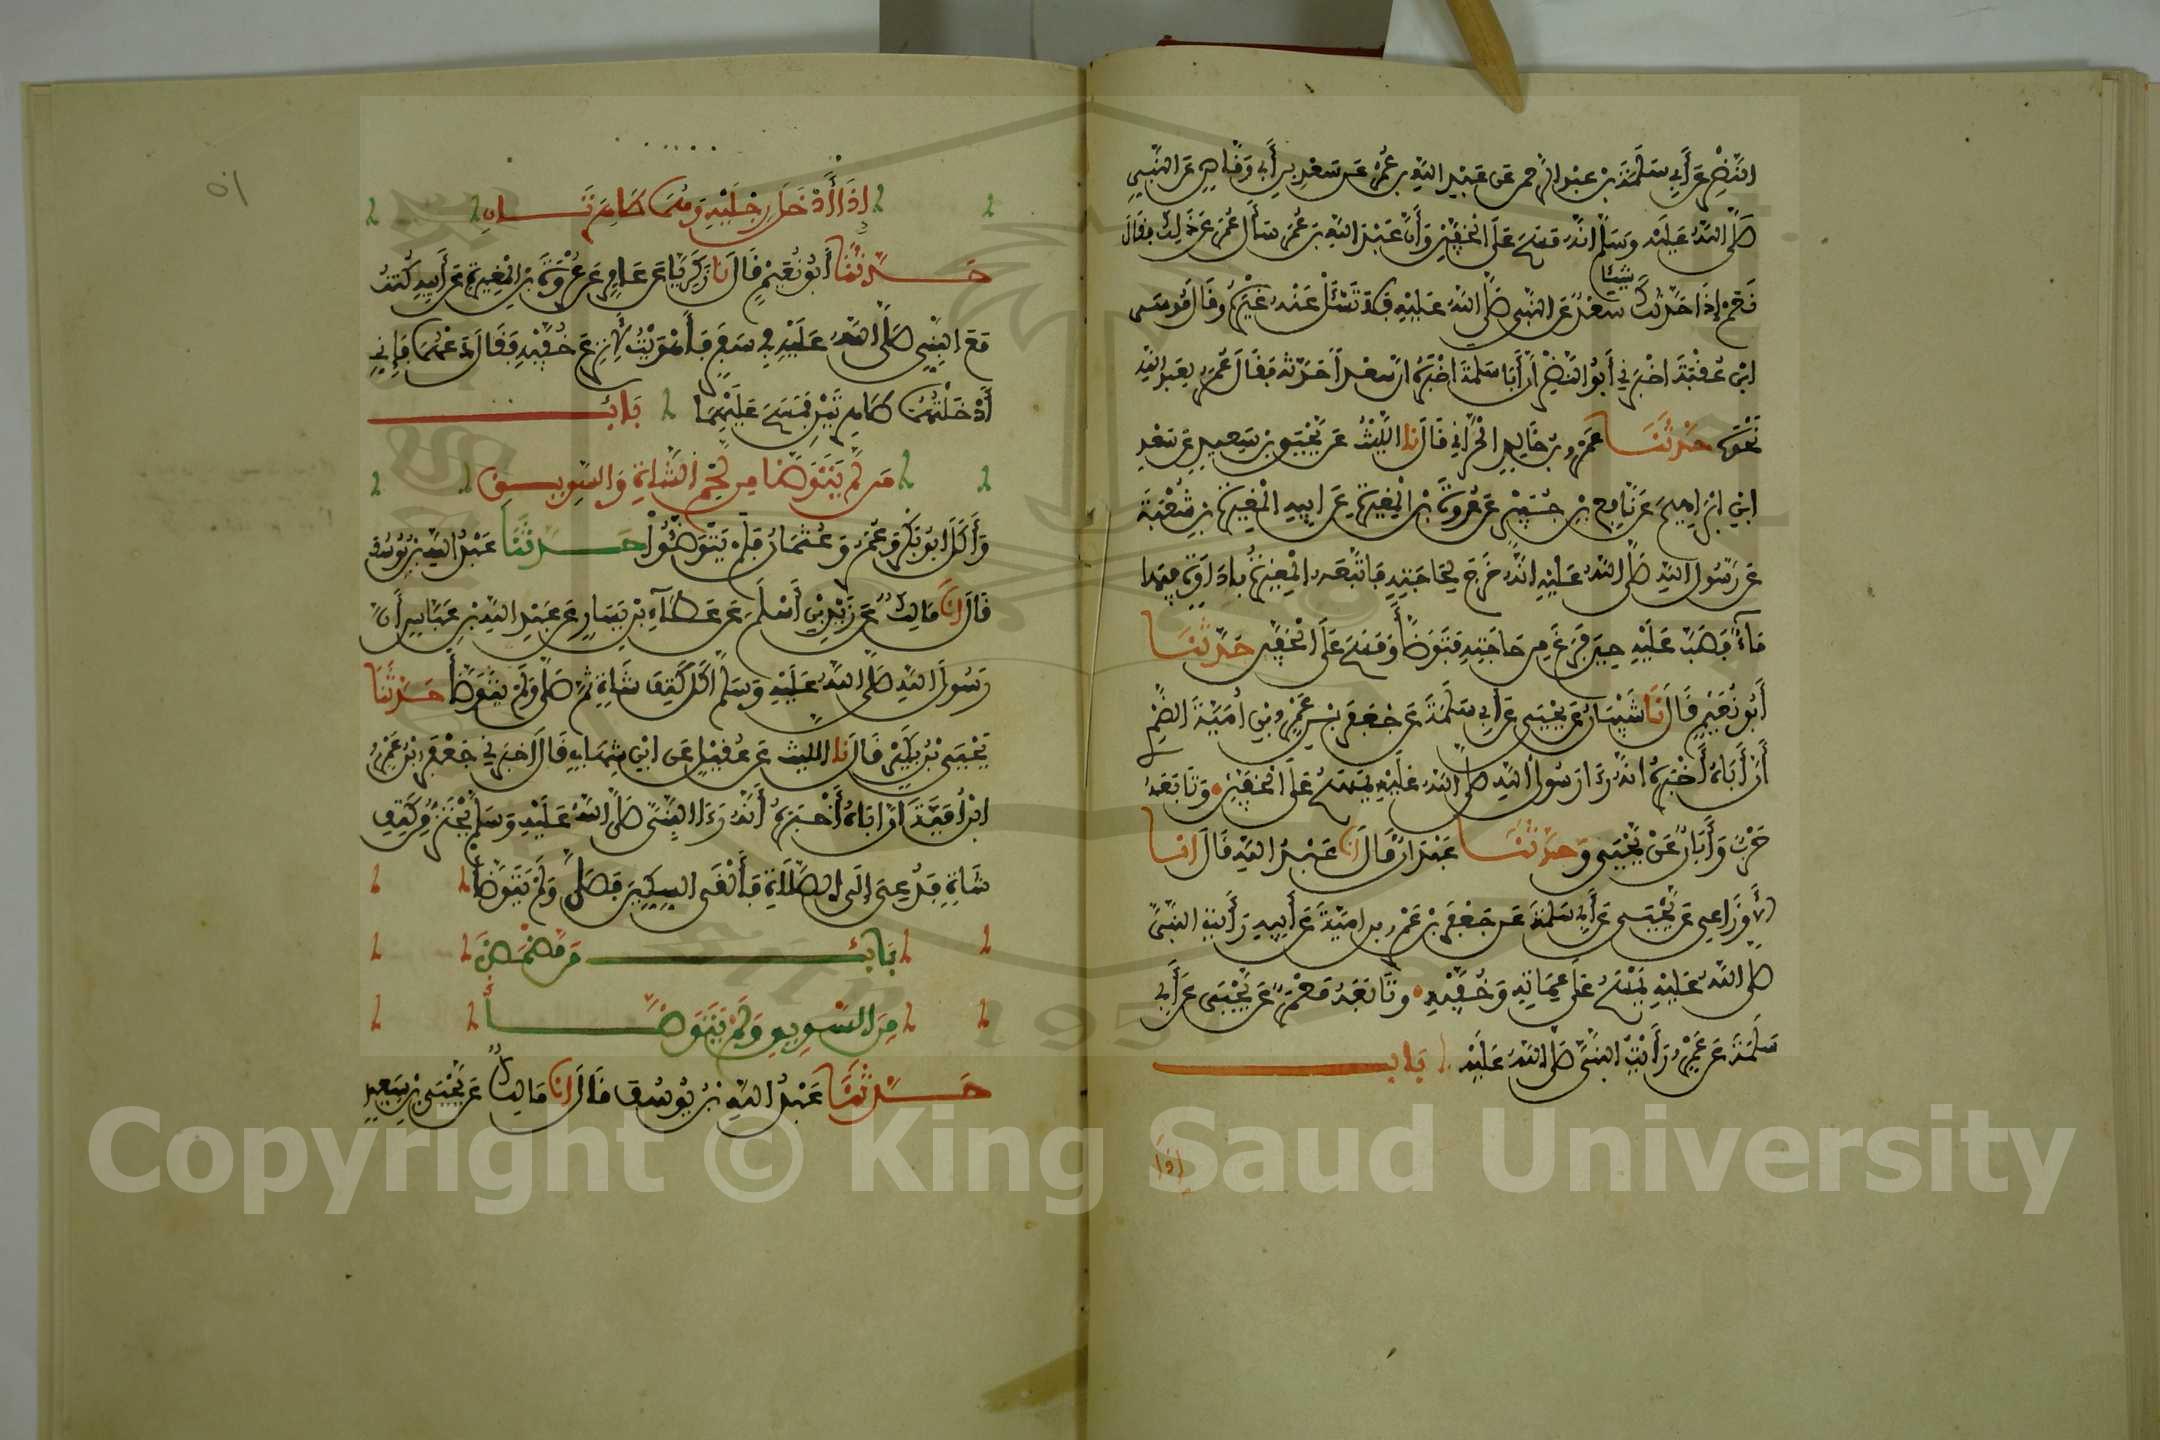 النضر عن أبي سلمة بن عبد الرحمن عن عبد الله بن عمر عن سعد بن أبي وقاص عن النبي
صلى الله عليه وسلم انه مسح على الخفين وأن عبد الله بن عمر سأل عمر عن ذلك فقال
شيئا
نعم إذا حدثك سعد عن النبي صلى الله عليه فلا تسئل عنه غيره وقال موسى
ابن عقبة اخبرني أبو النضر أن أبا سلمة اخبره ان سعدا حدثه فقال عمر لعبد الله
نحوه حدثنا عمرو بن خالد الحراني قال نا الليث عن يحيى بن سعيد عن سعد
ابن ابراهيم عن نافع بن جبير عن عروة بن المغيرة عن ابيه المغيرة بن شعبة
عن رسول الله صلى الله عليه انه خرج لحاجته فاتبعه المغيرة باداوة فيها
ماء فصب عليه حين فرغ من حاجته فتوضأ ومسح على الخفين حدثنا
أبو نعيم قال نا شيبان عن يحيى عن أبي سلمة عن جعفر بن عمرو بن أمية الضمري
أن أباه أخبره انه رءا رسول الله صلى الله عليه يمسح على الخفين وتابعه
حرب وأبان عن يحيى وحدثنا عبدان قال انا عبد الله قال انا
الأوزاعي عن يحيى عن أبي سلمة عن جعفر بن عمرو بن امية عن أبيه رأيت النبي
صلى الله عليه يمسح على عمامته وخفيه وتابعه معمر عن يحيى عن أبي
سلمة عن عمرو رأيت النبي صلى الله عليه باب
إذا
٥١
إذا أدخل رجليه وهما طاهرتان
حدثنا أبو نعيم قال نا زكرياء عن عامر عن عروة بن المغيرة عن أبيه كنت
مع النبي صلى الله عليه في سفر فأهويت لأنزع خفيه فقال دعهما فإني
أدخلتهما طاهرتين فمسح عليهما باب
من لم يتوضا من لحم الشاة والسويق
وأكل ابو بكر وعمر وعثمان فلم يتوضئوا حدثنا عبد الله بن يوسف
قال انا مالك عن زيد بن أسلم عن عطاء بن يسار عن عبد الله بن عباس أن
رسول الله صلى الله عليه وسلم أكل كتف شاة ثم صلى ولم يتوضأ حدثنا
يحيى بن بكير قال نا الليث عن عقيل عن ابن شهاب قال اخبرني جعفر بن عمرو
ابن أمية ان اباه أخبره أنه رءا النبي صلى الله عليه وسلم يحتز من كتف
شاة فدعي إلى الصلاة فألقى السكين فصلى ولم يتوضأ
باب من مضمض
من السويق ولم يتوضأ
حدثنا عبد الله بن يوسف قال انا مالك عن يحيى بن سعيد
Copyright © King Saud University
1957